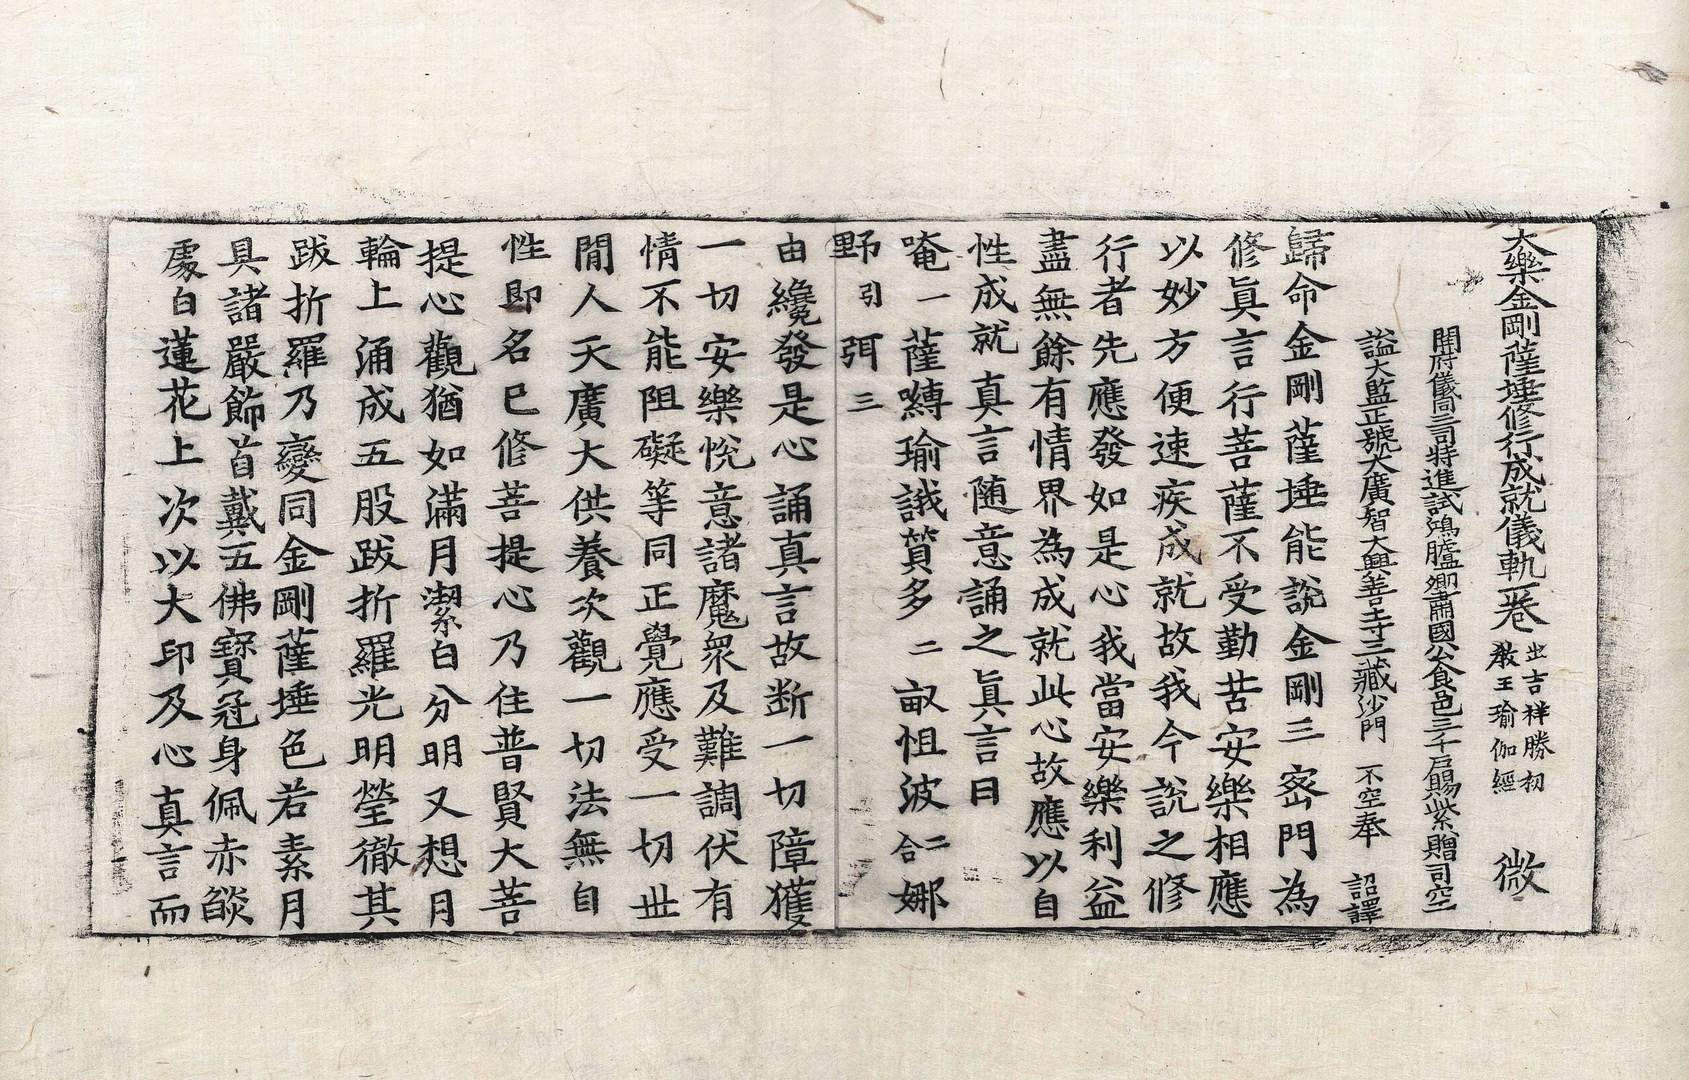 大樂金剛薩埵修行成就儀軌一卷 出吉祥勝初教王瑜伽經 微
開府儀同三司特進試鴻臚卿肅國公食邑三千戶賜紫贈司空
謚大監正號大廣智大興善寺三藏沙門 不空奉 詔譯
歸命金剛薩埵能說金剛三密門為
修眞言行菩薩不受勤苦安樂相應
以妙方便速疾成就故我今說之修
行者先應發如是心我當安樂利益
盡無餘有情界為成就此心故應以自
性成就真言随意誦之真言曰
唵一薩嚩瑜誐質多二畝怛波二合娜
野引弭三
由纔發是心誦真言故断一切障獲
一切安樂悅意諸魔衆及難調伏有
情不能阻礙等同正覺應受一切世
間人天廣大供養次觀一切法無自
性即名已修菩提心乃住普賢大菩
提心觀猶如滿月潔白分明又想月
輪上涌成五股跋折羅光明瑩徹其
跋折羅乃變同金剛薩埵色若素月
具諸嚴飾首戴五佛寶冠身佩赤燄
處白蓮花上次以大印及心真言而